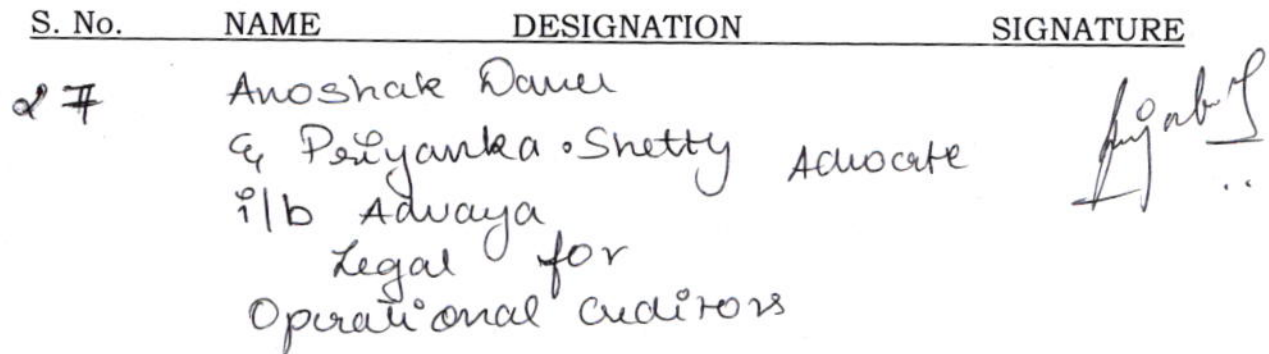 S. No. NAME DESIGNATION SIGNATURE
27 Anoshak Daver
& Priyanka. Shetty Advocate
i/b Advaya
Legal for
Operational Creditors